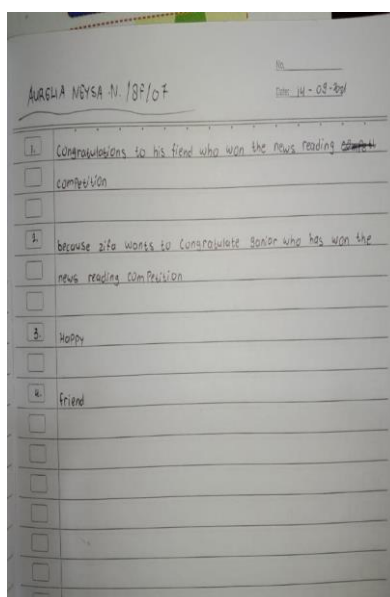 No.
AURELIA NEYSA .N. /8F/07
Date: 14 - 09 -
1. Congratulations to his fiend who won the news reading
competition
2. because zifa wants to Congratulate who has won the
news reading competition
3. Happy
4. friend